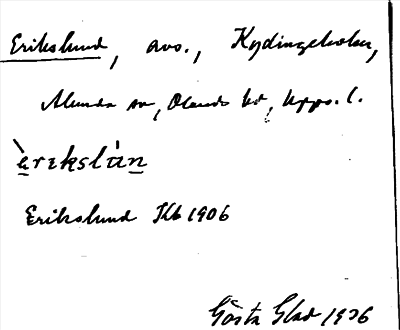 Erikslund, avs., Kydingeholm,
Alunda sn, Olands hd, Upps. l.
èrikslùn
Erikslund Kb 1906
Gösta Glad 1936